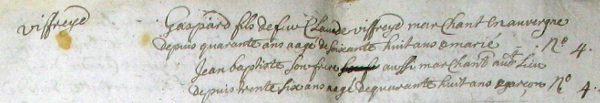 viffreyd
Gaspard fils de feu Claude viffreyd marchant en auvergne
depuis quarante ans aagé de soixante huit ans & marié N° 4.
Jean baptiste son frere aussi marchant aud.t Lieu
depuis trente six ans aagé de quarante huit ans & garçon N° 4.